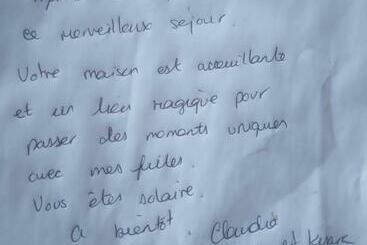 ce merveilleux séjour.
Votre maison est accueillante
et un lieu magique pour
passer des moments uniques
avec mes filles.
Vous êtes solaire.
A bientôt. Claudia
et